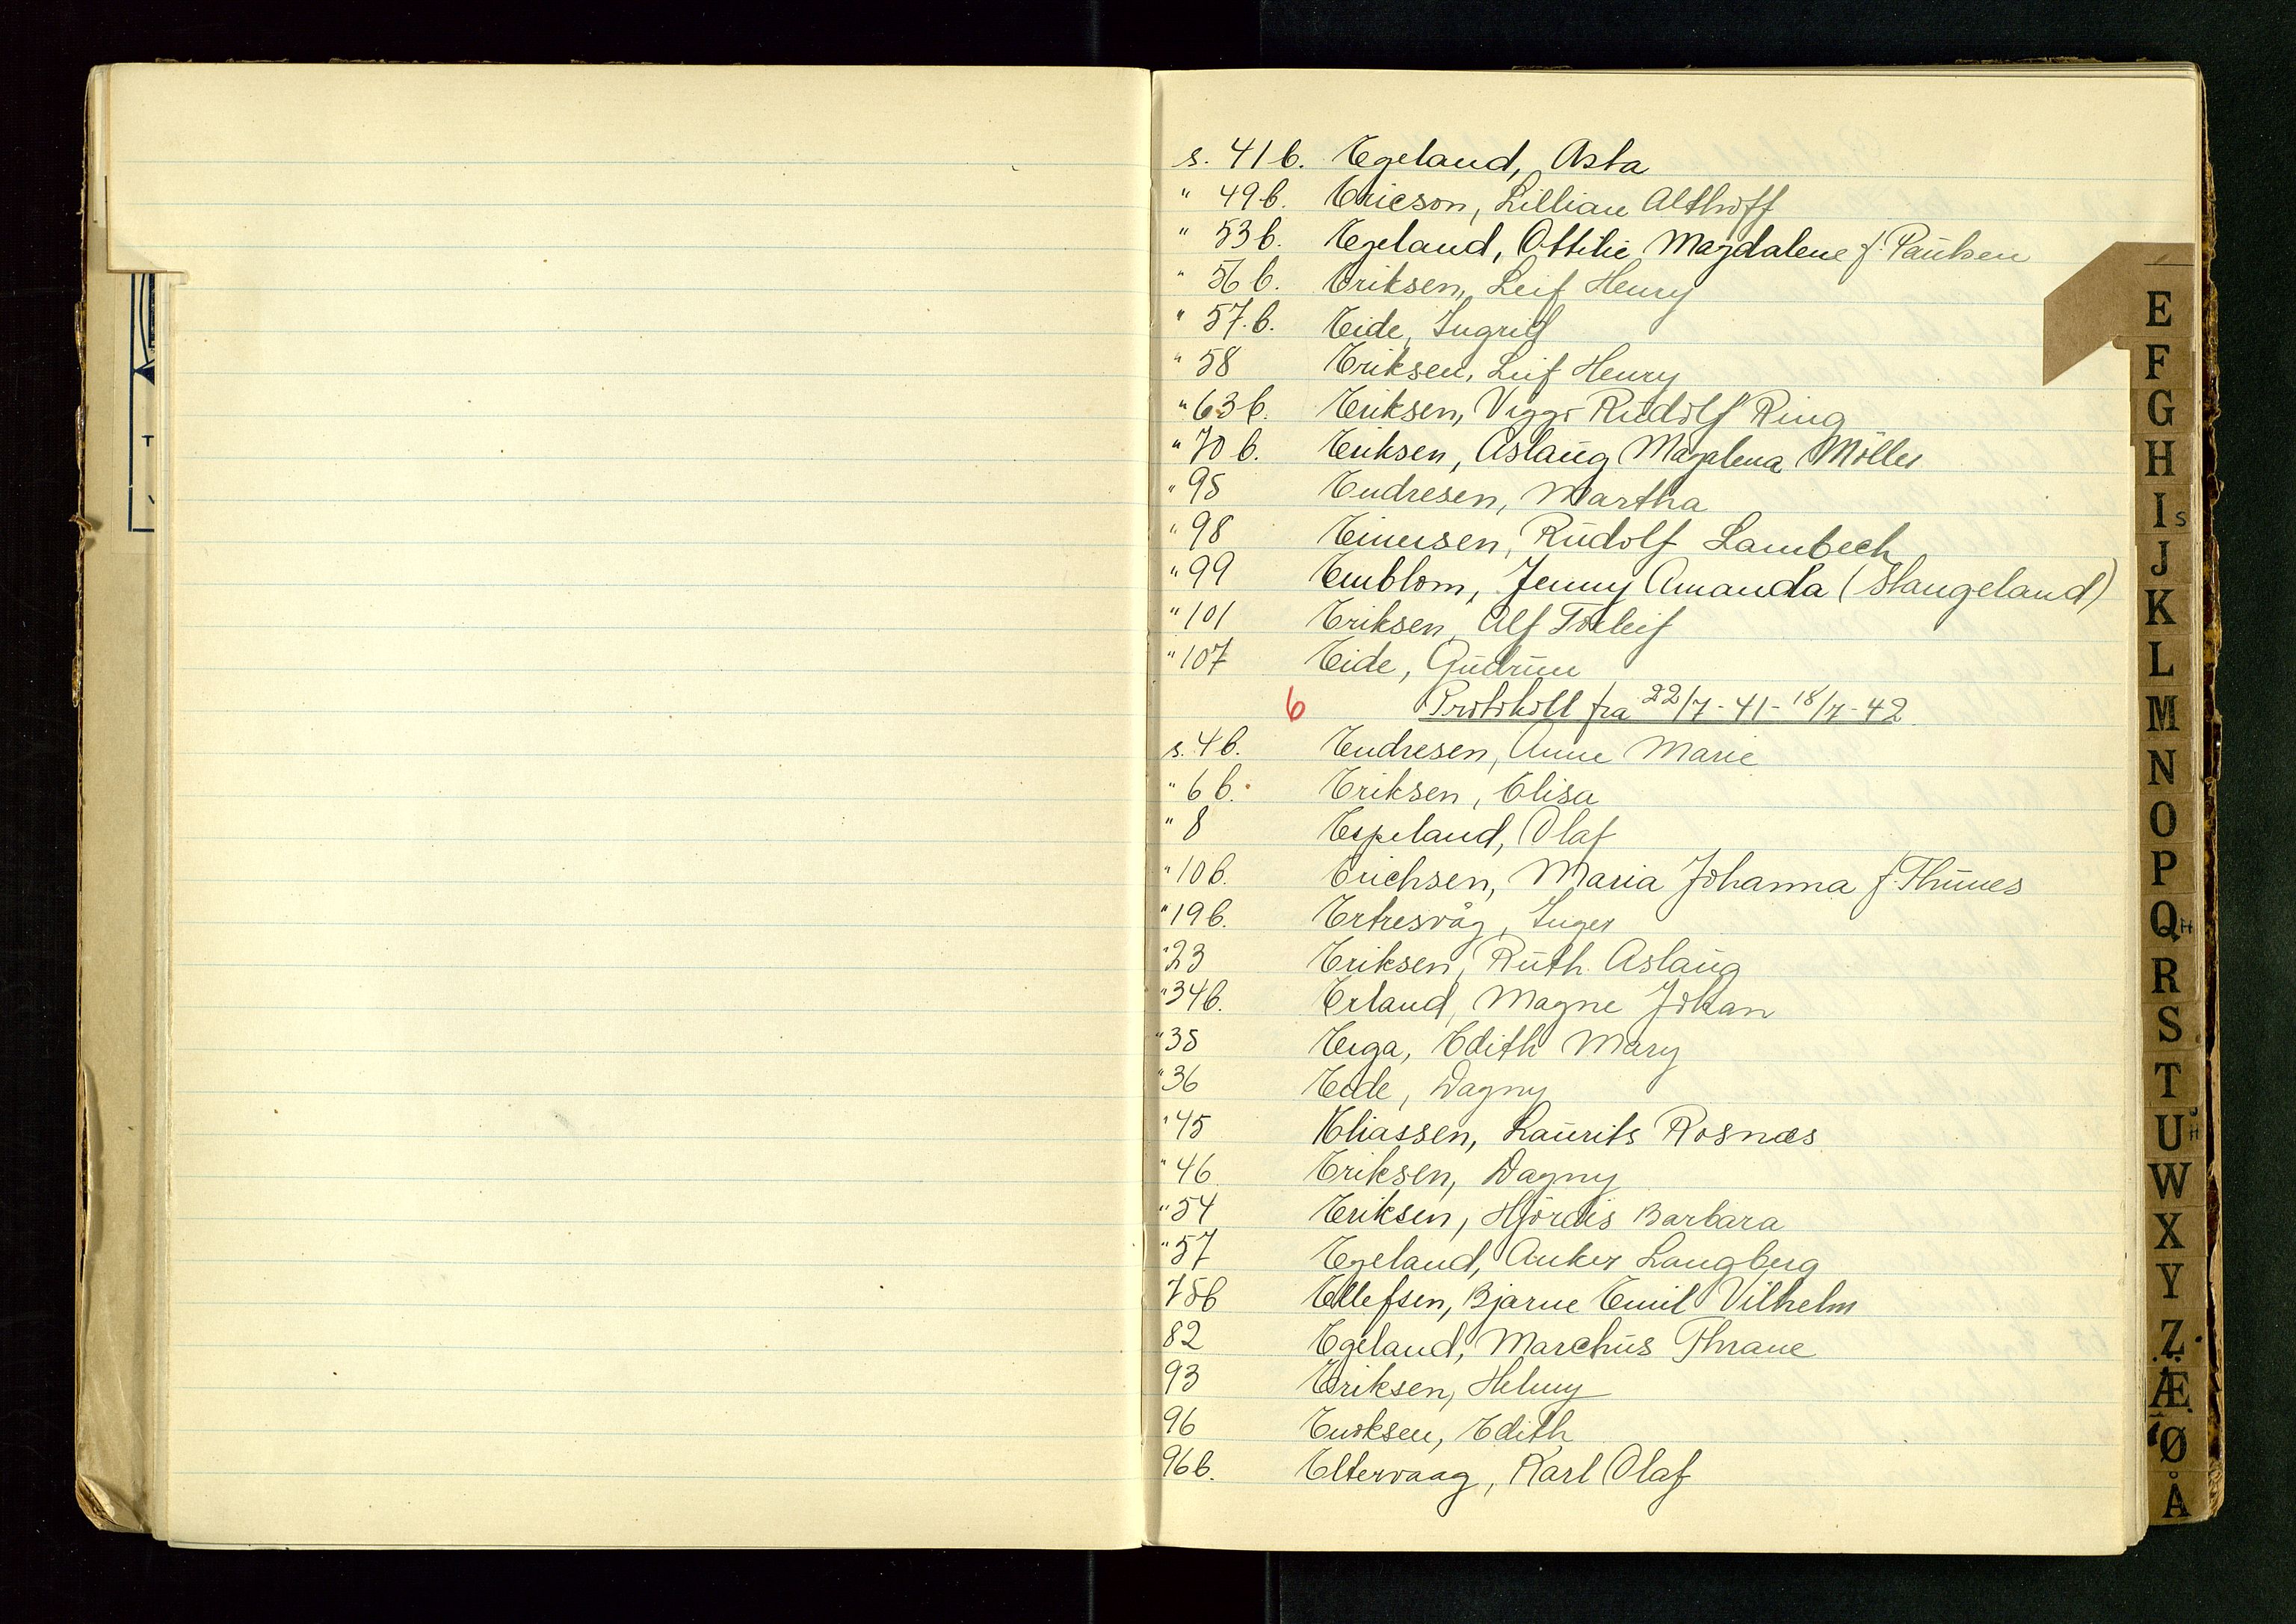 s. 41 b. Egeland, Asta
" 49 b. Ericson, Lillian Althoff
" 53 b. Egeland, Ottilie Magdalene f. Paulsen
" 56 b. Eriksen, Leif Henry
" 57. b. Eide, Ingrid
" 58 Eriksen, Leif Henry
" 63 b. Eriksen, Viggo Rudolf Ring
" 70 b. Eriksen, Aslaug Magalena Möller
" 95 Endresen, Martha
" 98 Einersen, Rudolf Lambech
" 99 Emblom, Jenny Amanda (Stangeland)
" 101 Eriksen, Alf Torleif
" 107 Eide, Gudrun
6 Protokoll fra 22/7-41-18/7-42
s. 4 b. Endresen, Anne Marie
" 6 b. Eriksen, Elisa
" 8 Espeland, Olaf
" 10 b. Erichsen, Maria Johanna f. Thunes
" 19 b. Ertresvåg, Inger
" 23 Eriksen, Ruth Aslaug
" 34 b. Erland, Magne Johan
" 35 Eiga, Edith Mary
" 36 Eide, Dagny
" 45 Eliassen, Laurits Rosnæs
" 46 Eriksen, Dagny
" 54 Eriksen, Hjördis Barbara
" 57 Egeland, Anker Langberg
75b Ellefsen, Bjarne Emil Vilhelm
82 Egeland, Marchus Thrane
93 Eriksen, Helmy
96 Eriksen, Edith
96 b. Eltervaag, Karl Olaf
E
F
G
H
I S
J
K
L
M
N
O
P
Q H
R
S
T
U
W
X
Y
Z
Æ
Ø
Å